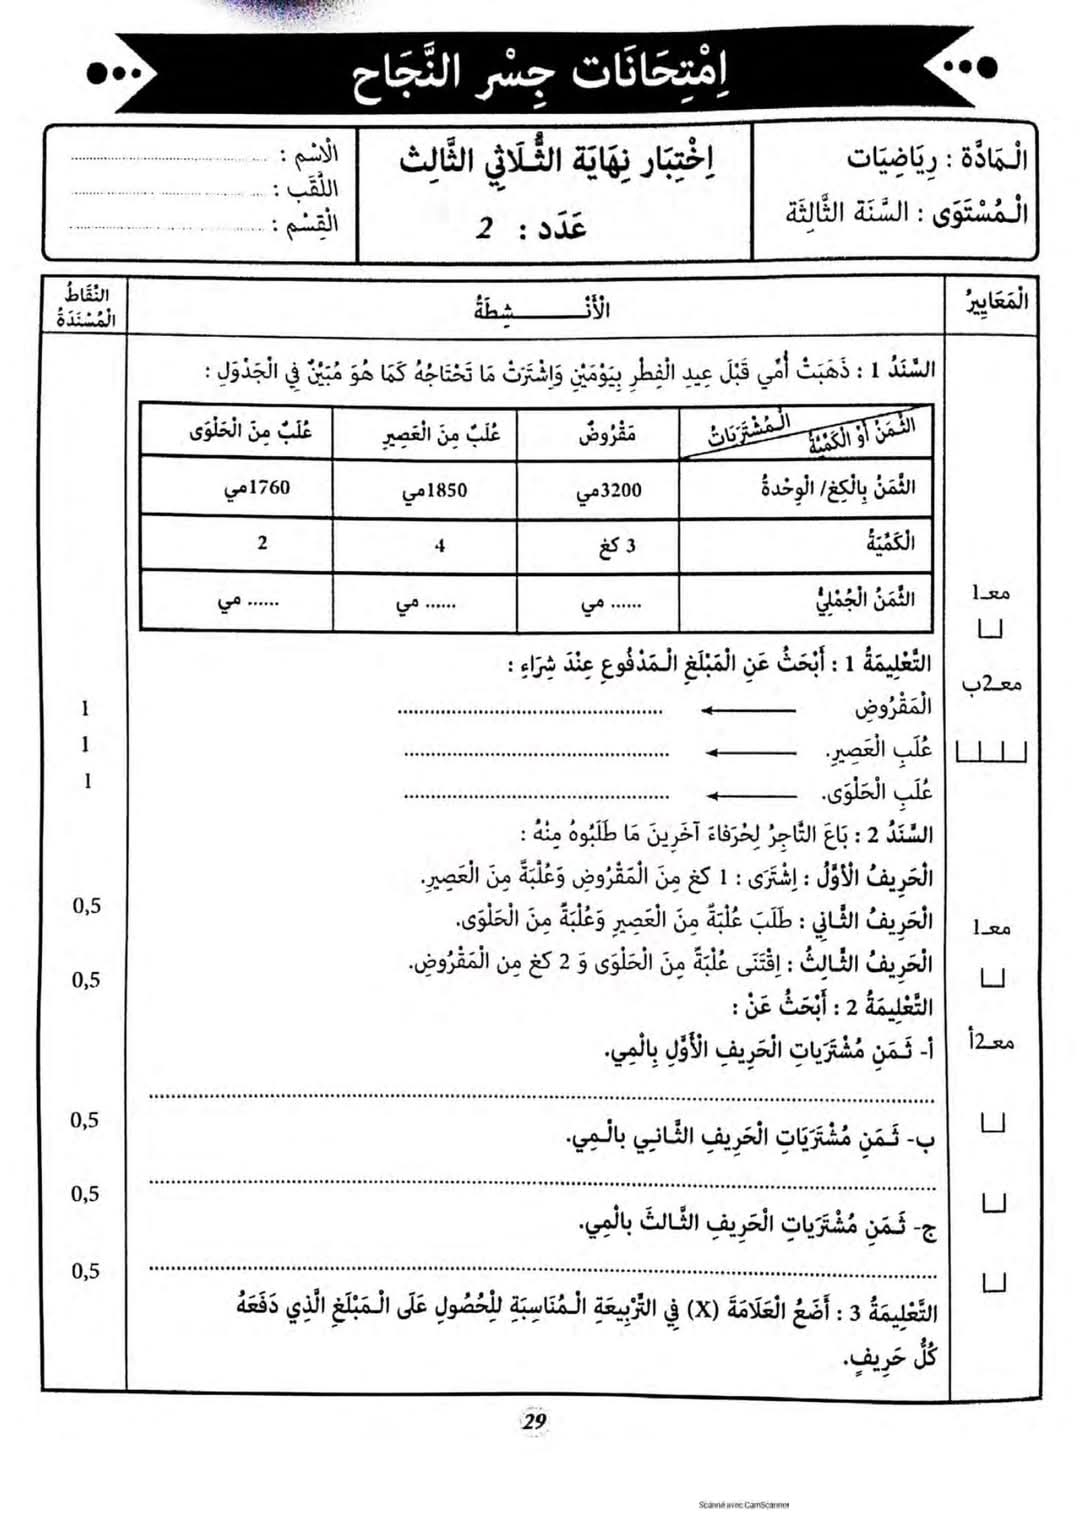 اِمْتِحَانَات جِسْر النَّجَاح
الْمَادَّة : رِيَاضِيَات
الْمُسْتَوَى : السَّنَة الثَّالِثَة
اِخْتِبَار نِهَايَة الثُّلَاثِي الثَّالِث
عَدَد : 2
الْاسْم : ........................
اللَّقَب : ........................
الْقِسْم : ........................
الْمَعَايِيرُ
الْأَنْـــــــشِطَةُ
النِّقَاطُ الْمُسْنَدَةُ
السَّنَدُ 1 : ذَهَبَتْ أُمِّي قَبْلَ عِيدِ الْفِطْرِ بِيَوْمَيْنِ وَاِشْتَرَتْ مَا تَحْتَاجُهُ كَمَا هُوَ مُبَيَّنٌ فِي الْجَدْوَلِ :
الثَّمَنُ أَوْ الْكَمِّيَّةُ الْمُشْتَرَيَاتُ مَقْرُوضٌ عُلَبٌ مِنَ الْعَصِيرِ عُلَبٌ مِنَ الْحَلْوَى
الثَّمَنُ بِالْكِغ/ الْوِحْدةُ 3200مي 1850مي 1760مي
الْكَمِّيَّةُ 3 كغ 4 2
الثَّمَنُ الْجُمْلِيُّ ...... مي ...... مي ...... مي
معـ1
التَّعْلِيمَةُ 1 : أَبْحَثُ عَنِ الْمَبْلَغِ الْمَدْفُوعِ عِنْدَ شِرَاءِ :
معـ2ب
الْمَقْرُوضِ ........................ 1
عُلَبِ الْعَصِيرِ. ........................ 1
عُلَبِ الْحَلْوَى. ........................ 1
السَّنَدُ 2 : بَاعَ التَّاجِرُ لِحُرَفاءَ آخَرِينَ مَا طَلَبُوهُ مِنْهُ :
الْحَرِيفُ الْأَوَّلُ : اِشْتَرَى : 1 كغ مِنَ الْمَقْرُوضِ وَعُلْبَةً مِنَ الْعَصِيرِ.
0,5
الْحَرِيفُ الثَّانِي : طَلَبَ عُلْبَةً مِنَ الْعَصِيرِ وَعُلْبَةً مِنَ الْحَلْوَى.
معـ1
الْحَرِيفُ الثَّالِثُ : اِقْتَنَى عُلْبَةً مِنَ الْحَلْوَى وَ 2 كغ مِن الْمَقْرُوضِ.
0,5
التَّعْلِيمَةُ 2 : أَبْحَثُ عَنْ :
معـ2أ
أ- ثَمَنِ مُشْتَرَياتِ الْحَرِيفِ الْأَوَّلِ بِالْمِي.
........................
0,5
ب- ثَمَنِ مُشْتَرَيَاتِ الْحَرِيفِ الثَّانِي بالْمِي.
........................
0,5
ج- ثَمَنِ مُشْتَرَياتِ الْحَرِيفِ الثَّالثَ بالْمِي.
........................
0,5
التَّعْلِيمَةُ 3 : أَضَعُ الْعَلَامَةَ (X) فِي التَّرْبِيعَةِ الْمُنَاسِبَةِ لِلْحُصُولِ عَلَى الْمَبْلَغِ الَّذِي دَفَعَهُ
كُلُّ حَرِيفٍ.
29
Scanné avec CamScanner